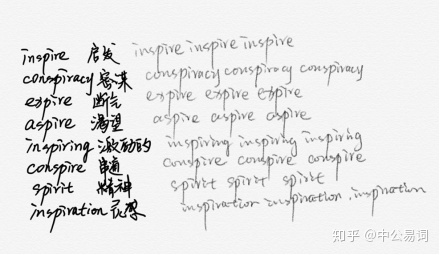 inspire 启发 inspire inspire inspire
conspiracy 密谋 conspiracy conspiracy conspiracy
expire 断气 expire expire expire
aspire 渴望 aspire aspire aspire
inspiring 激励的 inspiring inspiring inspiring
conspire 串通 conspire conspire conspire
spirit 精神 spirit spirit spirit
inspiration 灵感 inspiration inspiration inspiration
知乎 @中公易词